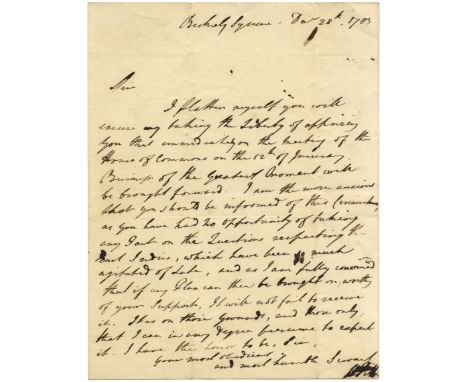 Berkeley Square. Decr 28th. 1783
Sir
I flatter myself you will
excuse my taking the Liberty of apprizing
you that immediately on the meeting of the
House of Commons on the 12th of January
Business of the Greatest Moment will
be brought forward. I am the more anxious
that you should be informed of this Circumstance,
as you have had no opportunity of taking
any Part on the Questions respecting the
East Indies, which have been so much
agitated of Late, and as I am fully convinced
that if any Plan can then be brought on, worthy
of your Support, It will not fail to receive
it. It is on those Grounds, and those only,
that I can in any degree presume to expect
it. I have the honor to be, Sir,
your most obedient
and most humble Servant
W Pitt